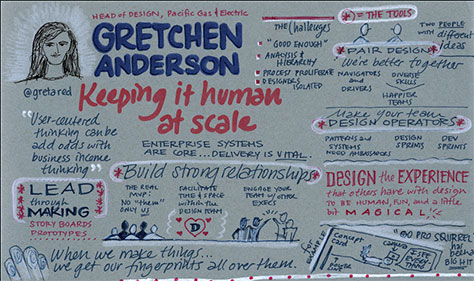 HEAD OF DESIGN, Pacific Gas & Electric
GRETCHEN
ANDERSON
@gretared
Keeping it human
at scale
ENTERPRISE SYSTEMS
ARE CORE...DELIVERY IS VITAL.
THE Challenges
"GOOD ENOUGH"
ANALYSIS &
HIERARCHY
PROCESS PROLIFERATE
DESIGNERS
ISOLATED
= THE TOOLS
TWO PEOPLE
with different
Ideas
PAIR DESIGN
"We're better together
NAVIGATORS
and
DRIVERS
DIVERSE
SKILLS
HAPPIER
TEAMS
Make your team
DESIGN OPERATORS
PATTERNS and
SYSTEMS
NEED AMBASSADORS
DESIGN
SPRINTS
DEV
SPRINTS
"User-centered
thinking can be
add odds with
business income
thinking"
LEAD
through
MAKING
STORY BOARDS
PROTOTYPES
Build strong relationships
THE REAL
MVP:
No "them"
ONLY US
FACILITATE
TIME & SPACE
within the
DESIGN TEAM
D
ENGAGE YOUR
TEAM w/ other
EXECS
DESIGN the EXPERIENCE
that others have with design
TO BE HUMAN, FUN, and a little
bit MAGICAL!
When we make things...
we get our fingerprints all over them.
for EXAMPLE
Concept
card
camera
I SEE
EVERY
THING
"GO PRO SQUIRREL"
has
been a
BIG HIT